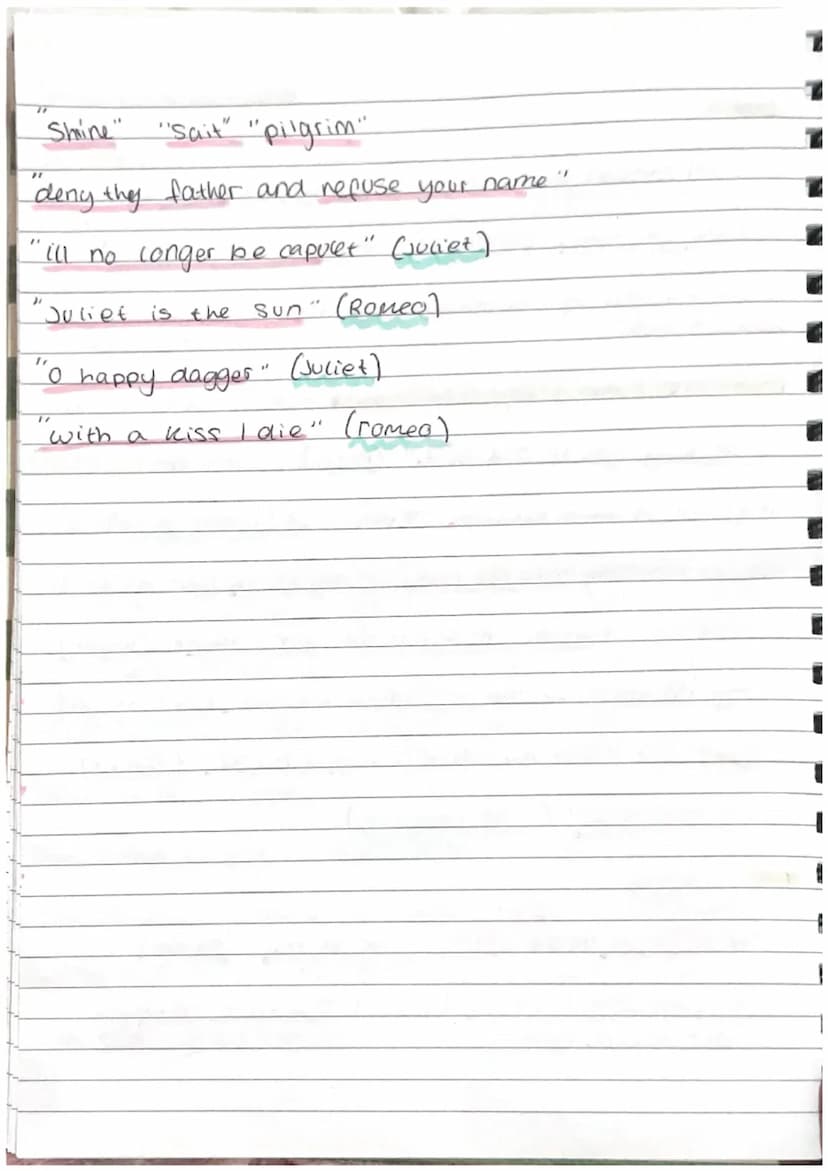 "Shrine" "Sait" "pilgrim"
"deny thy father and refuse your name"
"ill no longer be capulet" (Juliet)
"Juliet is the sun" (Romeo)
"O happy dagger" (Juliet)
"with a kiss I die" (romeo)